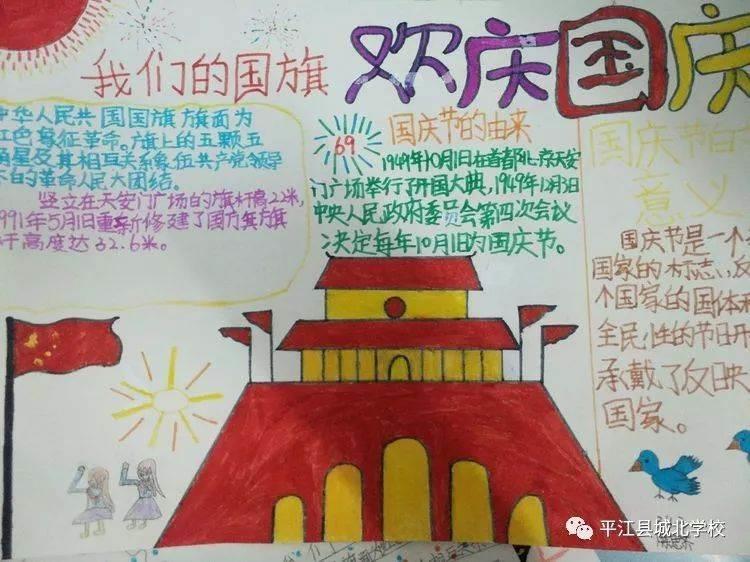 我们的国旗
欢庆国庆
中华人民共国国旗旗面为
红色象征革命。旗上的五颗五
角星及其相互关系象伍共产党领导
下的革命人民大团结。
竖立在天安门广场的旗杆高22米,
1991年5月1日重新修建了国方旗方旗
杆高度达32.6米。
69
国庆节的由来
1949年10月1日在首者阝北京天安
门广场举行了开国大典,1949年12月3日
中央人民政府委员会第四次会议
决定每年10月1日为国庆节。
国庆节的
意义
国庆节是一个
国家的标志,
个国家的国体
全民性的节日
承戴了反映
国家。
平江县城北学校